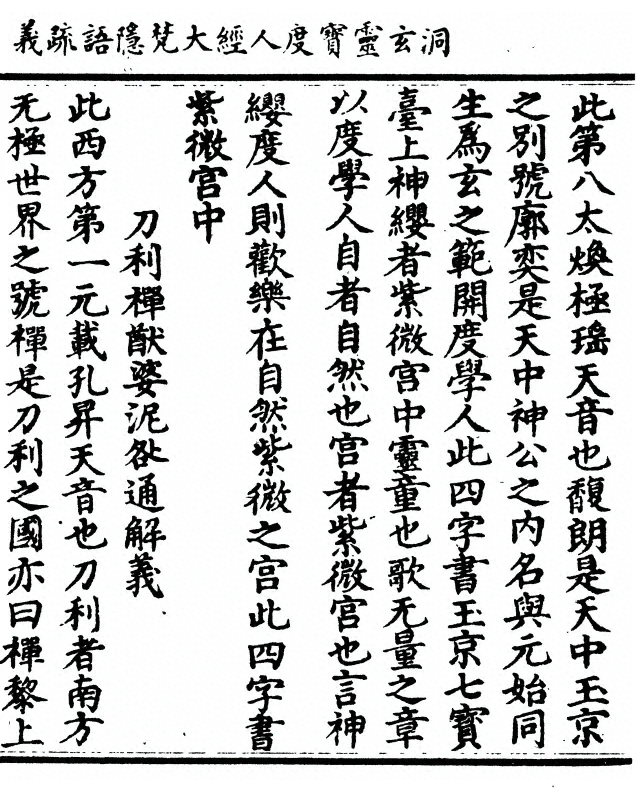 洞玄靈寶度人經大梵隱語疏義
此第八太煥極瑤天音也馥朗是天中玉京
之別號廓奕是天中神公之内名與元始同
生爲玄之範開度學人此四字書玉京七寶
臺上神纓者紫微宫中靈童也歌无量之章
以度學人自者自然也宫者紫微宫也言神
纓度人則歡樂在自然紫微之宫此四字書
紫微宫中
刀利禪猷婆泥咎通解義
此西方第一元載孔昇天音也刀利者南方
无極世界之號禪是刀利之國亦曰禪黎上